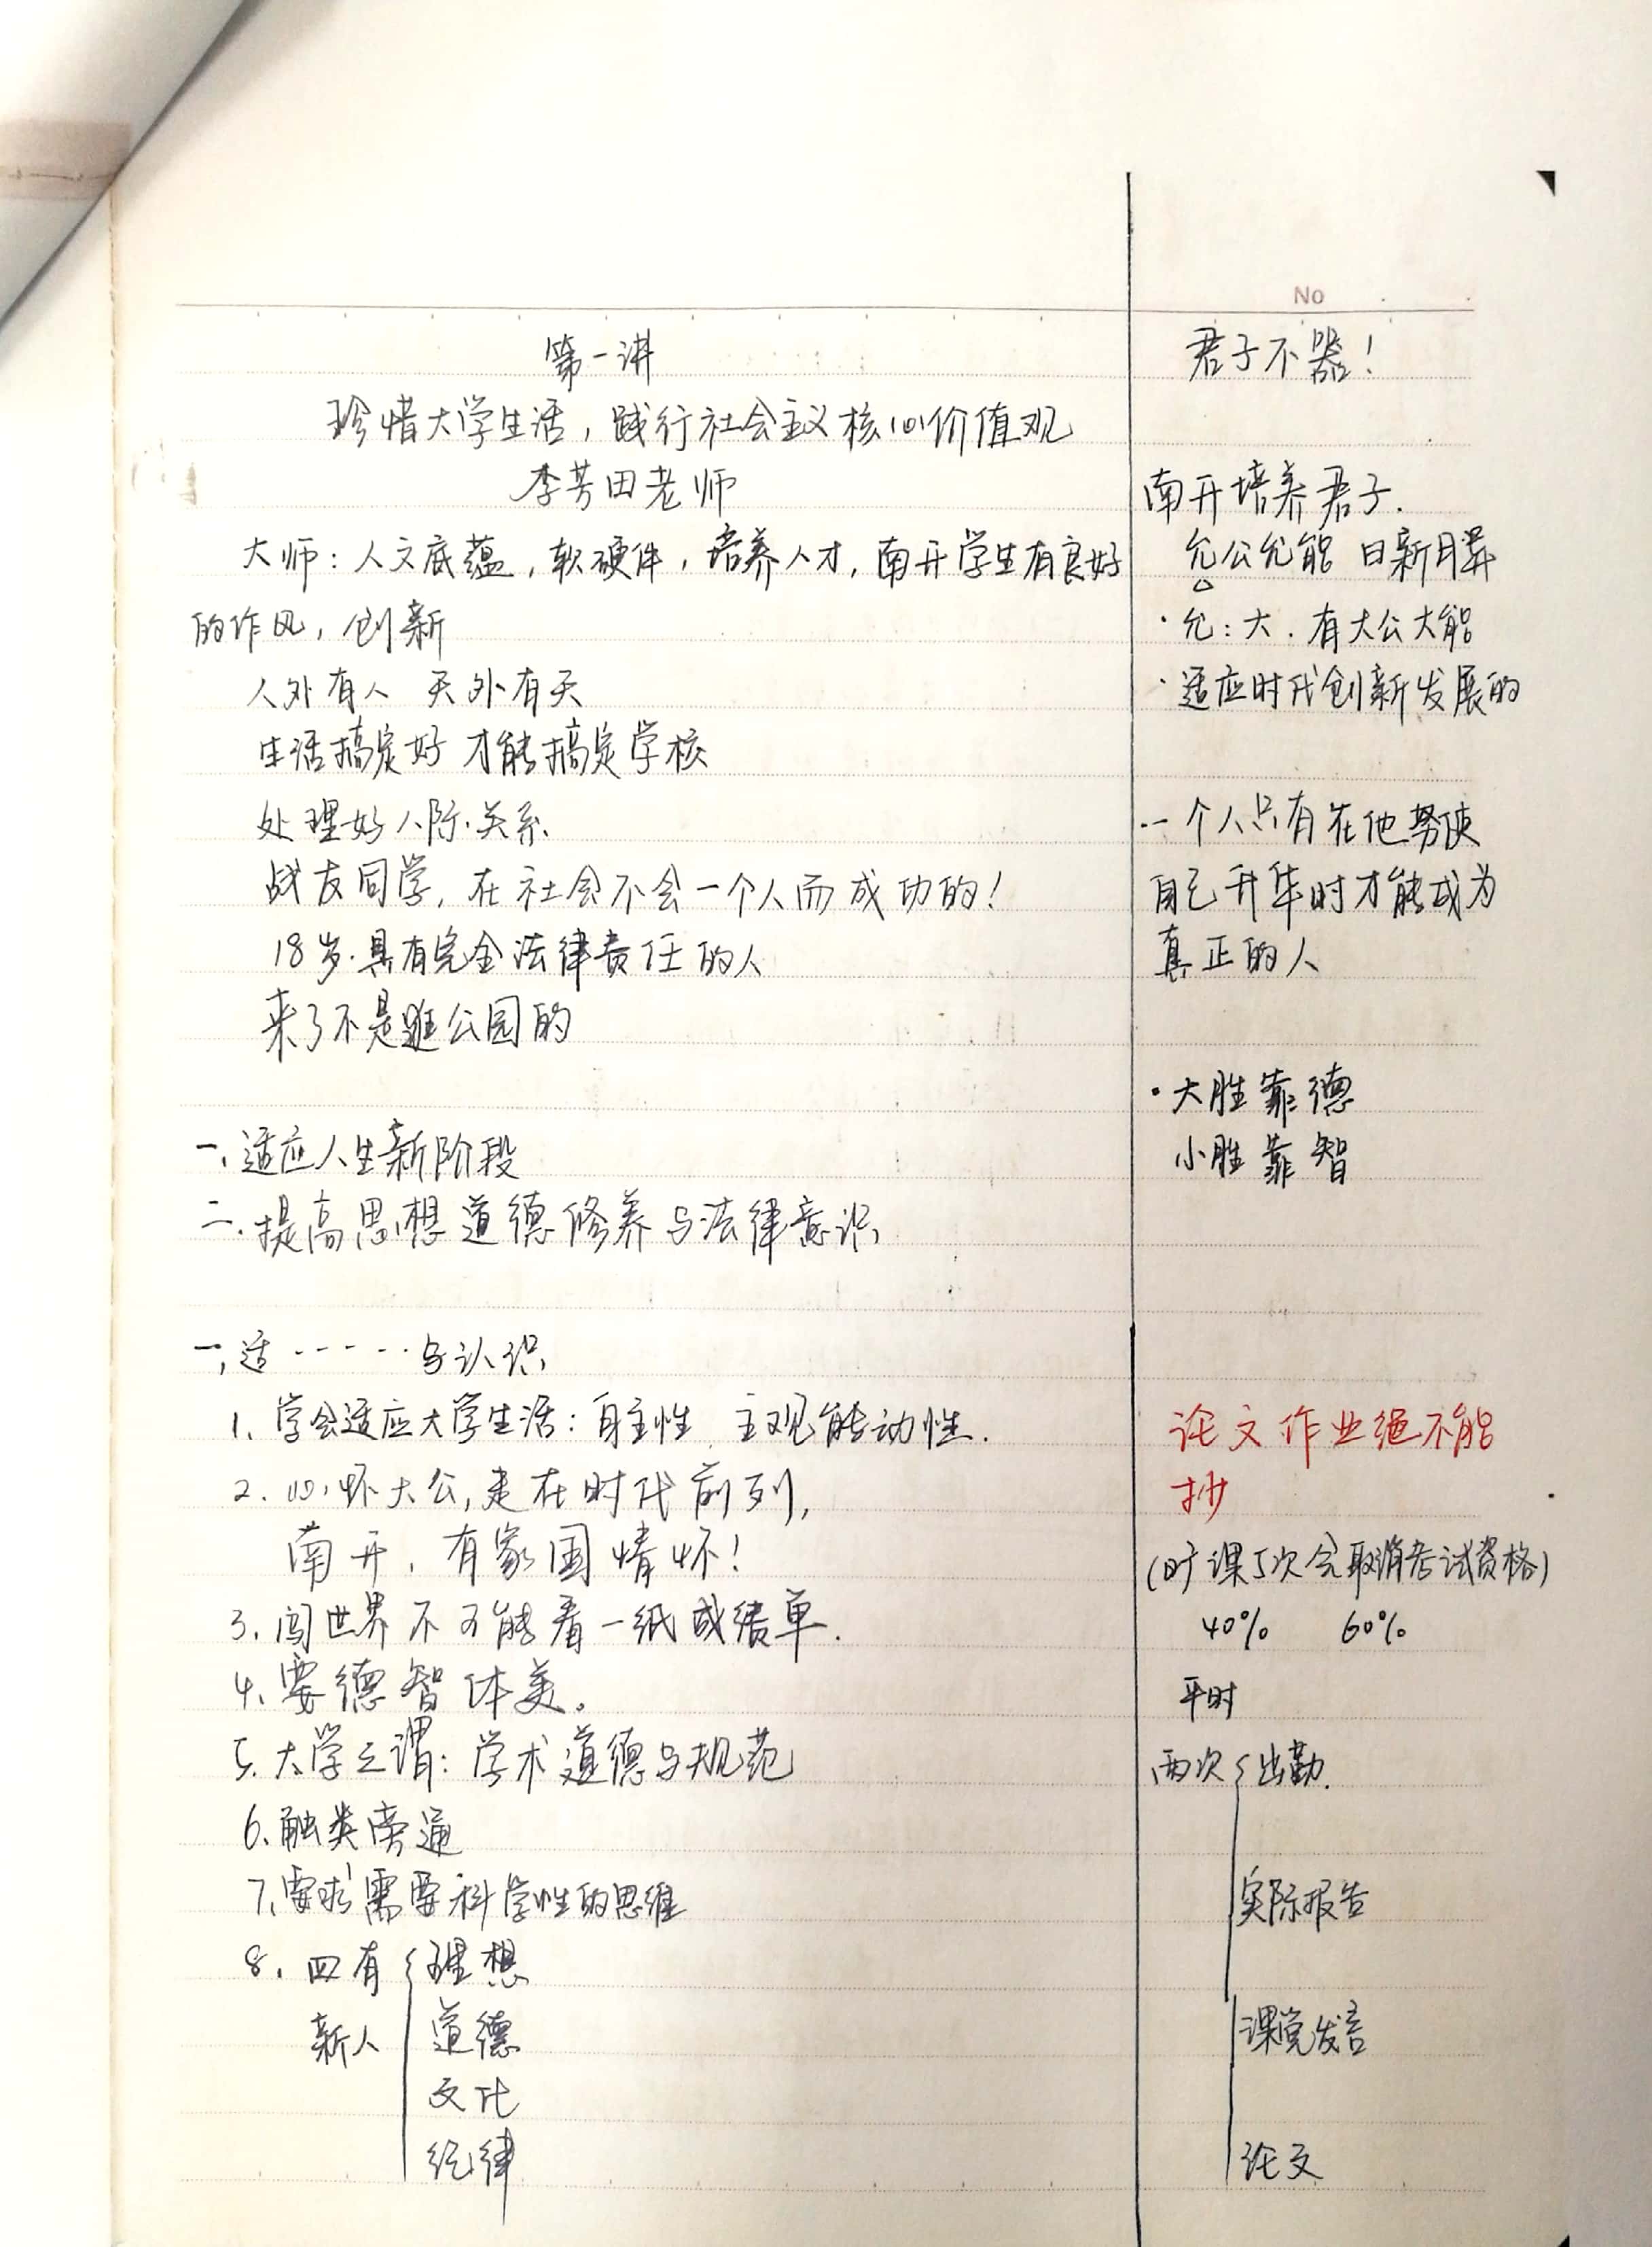 No
第一讲
珍惜大学生活，践行社会主义核心价值观
李芳田老师
大师：人文底蕴，软硬件，培养人才，南开学生有良好
的作风，创新
人外有人 天外有天
生活搞定好 才能搞定学校
处理好人际关系
战友同学，在社会不会一个人而成功的！
18岁.具有完全法律责任的人
来了不是逛公园的
一、适应人生新阶段
二.提高思想道德修养与法律意识
一，适······与认识
1、学会适应大学生活：自主性 主观能动性.
2.心怀大公,走在时代前列,
南开，有家国情怀！
3.闯世界不可能看一纸成绩单.
4、要德智体美。
5.大学之谓：学术道德与规范
6、触类旁通
7、要求需要科学性的思维
8.四有 理想
新人 道德
文化
纪律
君子不器！
南开培养君子.
允公允能 日新月异
·允：大.有大公大能
·适应时代创新发展的
·一个人只有在他努使
自己升华时才能成为
真正的人
·大胜靠德
小胜靠智
论文作业绝不能
抄
(旷课5次会取消考试资格)
40% 60%
平时
两次 出勤.
实际报告
课堂发言
论文